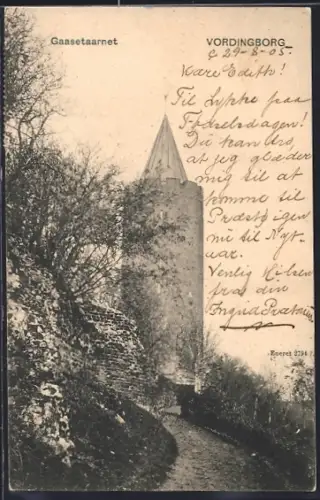 Gaasetaarnet
VORDINGBORG
29-8-05.
Kære Edith!
Til Lykke paa
Fødselsdagen!
Du kan tro,
at jeg glæder
mig til at
komme til
Præstø igen
nu til Nyt-
aar.
Venlig Hilsen
fra din
Ingrid
Eneret